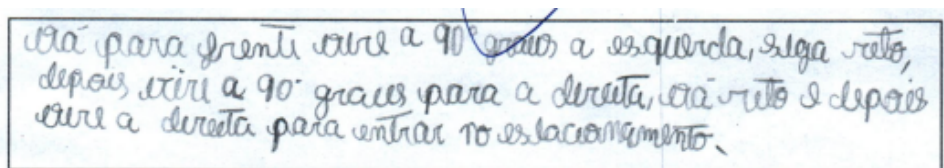 vá para frente vire a 90° graus a esquerda, siga reto,
depois vire a 90° graus para a direita, vá reto e depois
vire a direita para entrar no estacionamento.